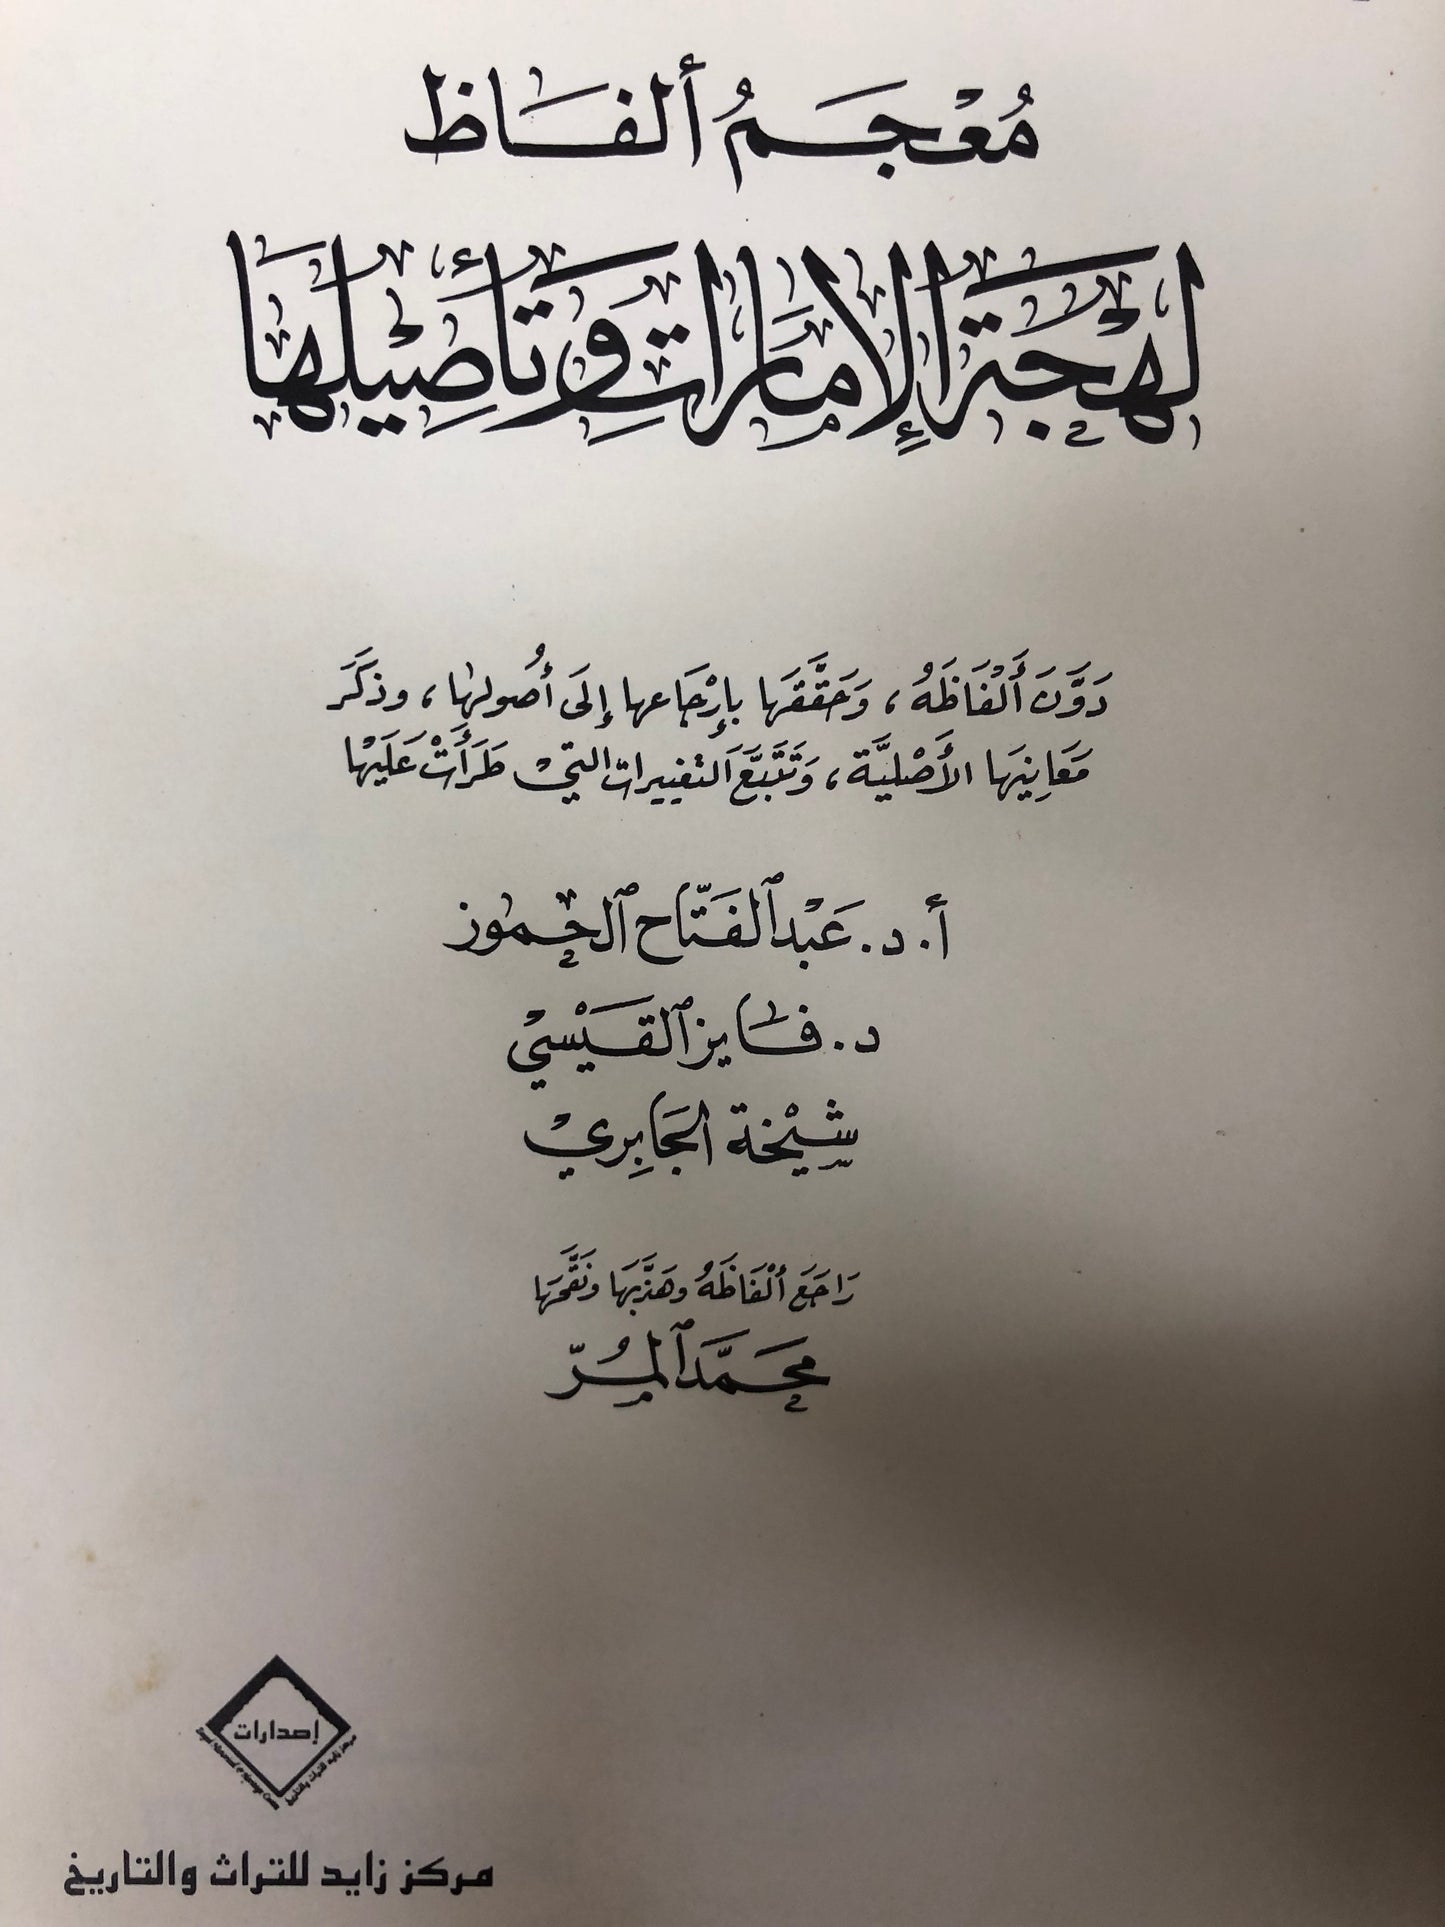 مُعْجَمُ ألفَاظ
لَهْجَة الإمَارَات وَتَأصِيلهَا
دَوَّنَ أَلْفَاظَهُ، وَحَقَّقَهَا بإرْجَاعها إلَى أصُولها، وذكَرَ
مَعَانِيَها الأَصْليَّة، وَتَتَبَّعَ التغييرات التيْ طَرَأَتْ عَلَيْها
أ. د. عَبْد الفَتَّاح الحموز
د. فَايز القَيْسيْ
شيْخة الجَابِريْ
رَاجَعَ ألْفَاظَهُ وهَذَّبَها ونَقَّحَها
محَمَّد المُرّ
إصدارات
مركز زايد للتراث والتاريخ